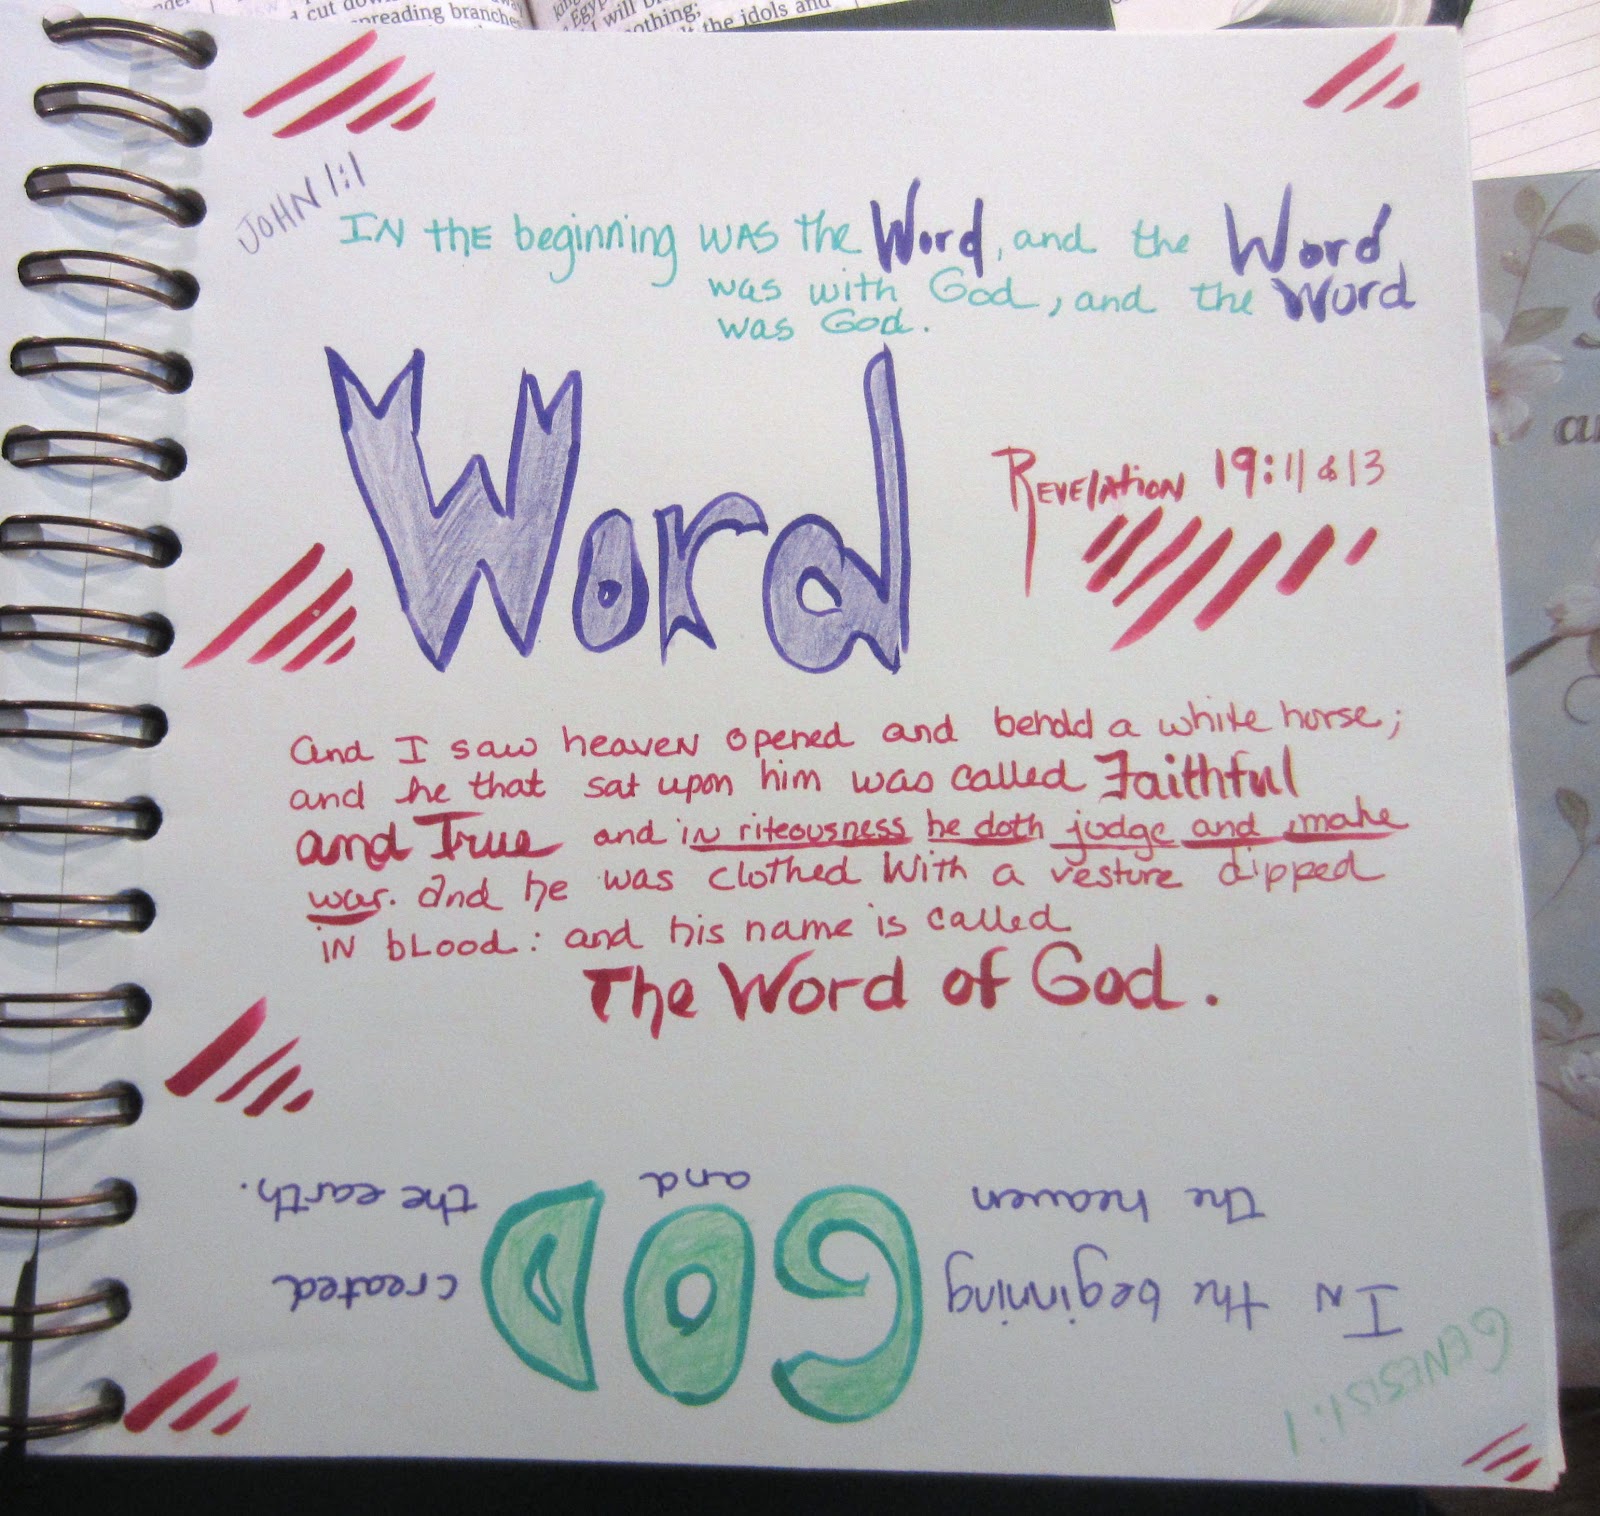 cut down
spreading branches
Egypt
I will
nothing;
the idols and
JOHN 1:1
IN the beginning WAS the Word, and the Word
was with God, and the Word
was God.
Word
Revelation 19:11 & 13
and I saw heaven opened and behold a white horse;
and he that sat upon him was called Faithful
and True and in riteousness he doth judge and make
war. and he was clothed with a vesture dipped
in blood: and his name is called
The Word of God.
GENESIS 1:1
In the beginning GOD created
the heaven and the earth.